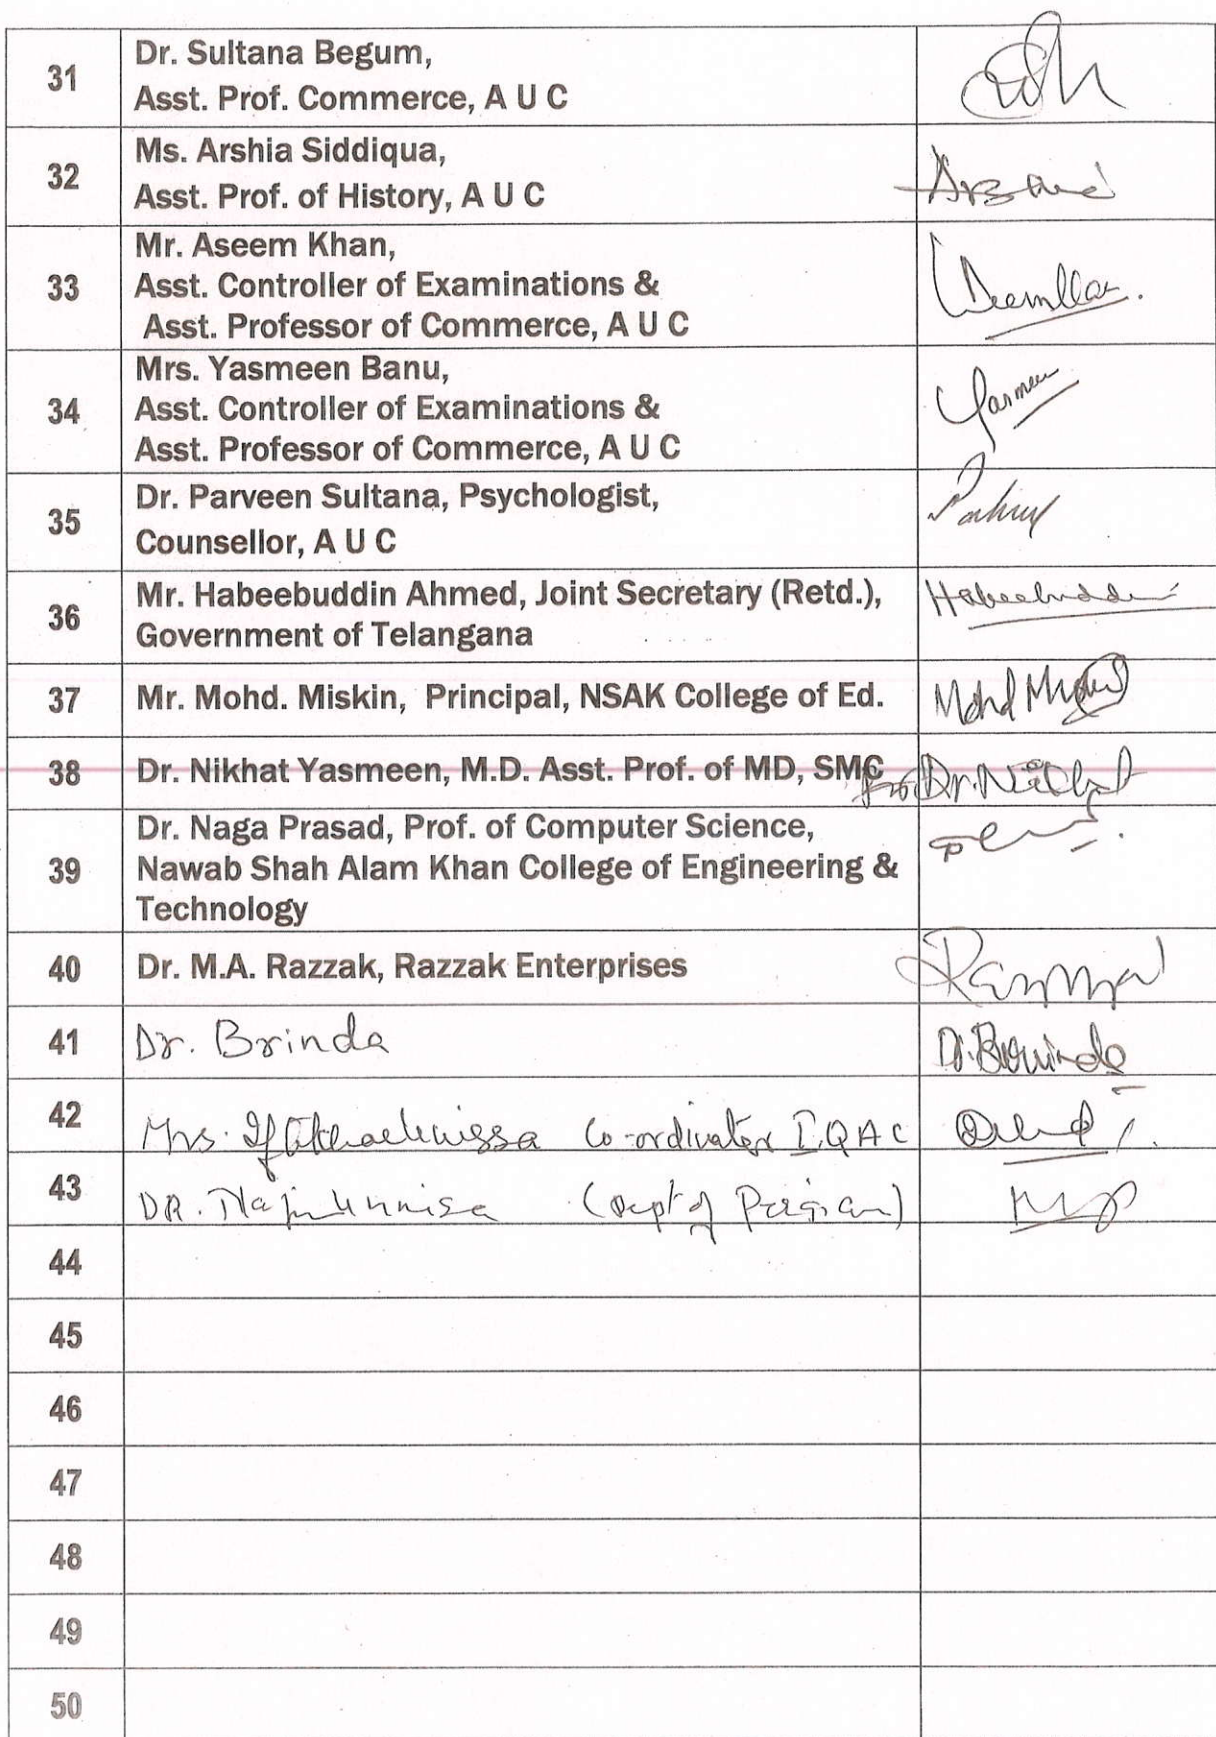 31
Dr. Sultana Begum,
Asst. Prof. Commerce, A U C
32
Ms. Arshia Siddiqua,
Asst. Prof. of History, A U C
33
Mr. Aseem Khan,
Asst. Controller of Examinations &
Asst. Professor of Commerce, A U C
34
Mrs. Yasmeen Banu,
Asst. Controller of Examinations &
Asst. Professor of Commerce, A U C
Yasmeen
35
Dr. Parveen Sultana, Psychologist,
Counsellor, A U C
36
Mr. Habeebuddin Ahmed, Joint Secretary (Retd.),
Government of Telangana
Habeebuddin
37
Mr. Mohd. Miskin, Principal, NSAK College of Ed.
Mohd
38
Dr. Nikhat Yasmeen, M.D. Asst. Prof. of MD, SMC
Dr. Nikhat
39
Dr. Naga Prasad, Prof. of Computer Science,
Nawab Shah Alam Khan College of Engineering &
Technology
40
Dr. M.A. Razzak, Razzak Enterprises
41
Dr. Brinda
Dr. Brinda
42
Mrs. Co-ordinator I.Q A C
43
DR. (Dept of Persian)
44
45
46
47
48
49
50